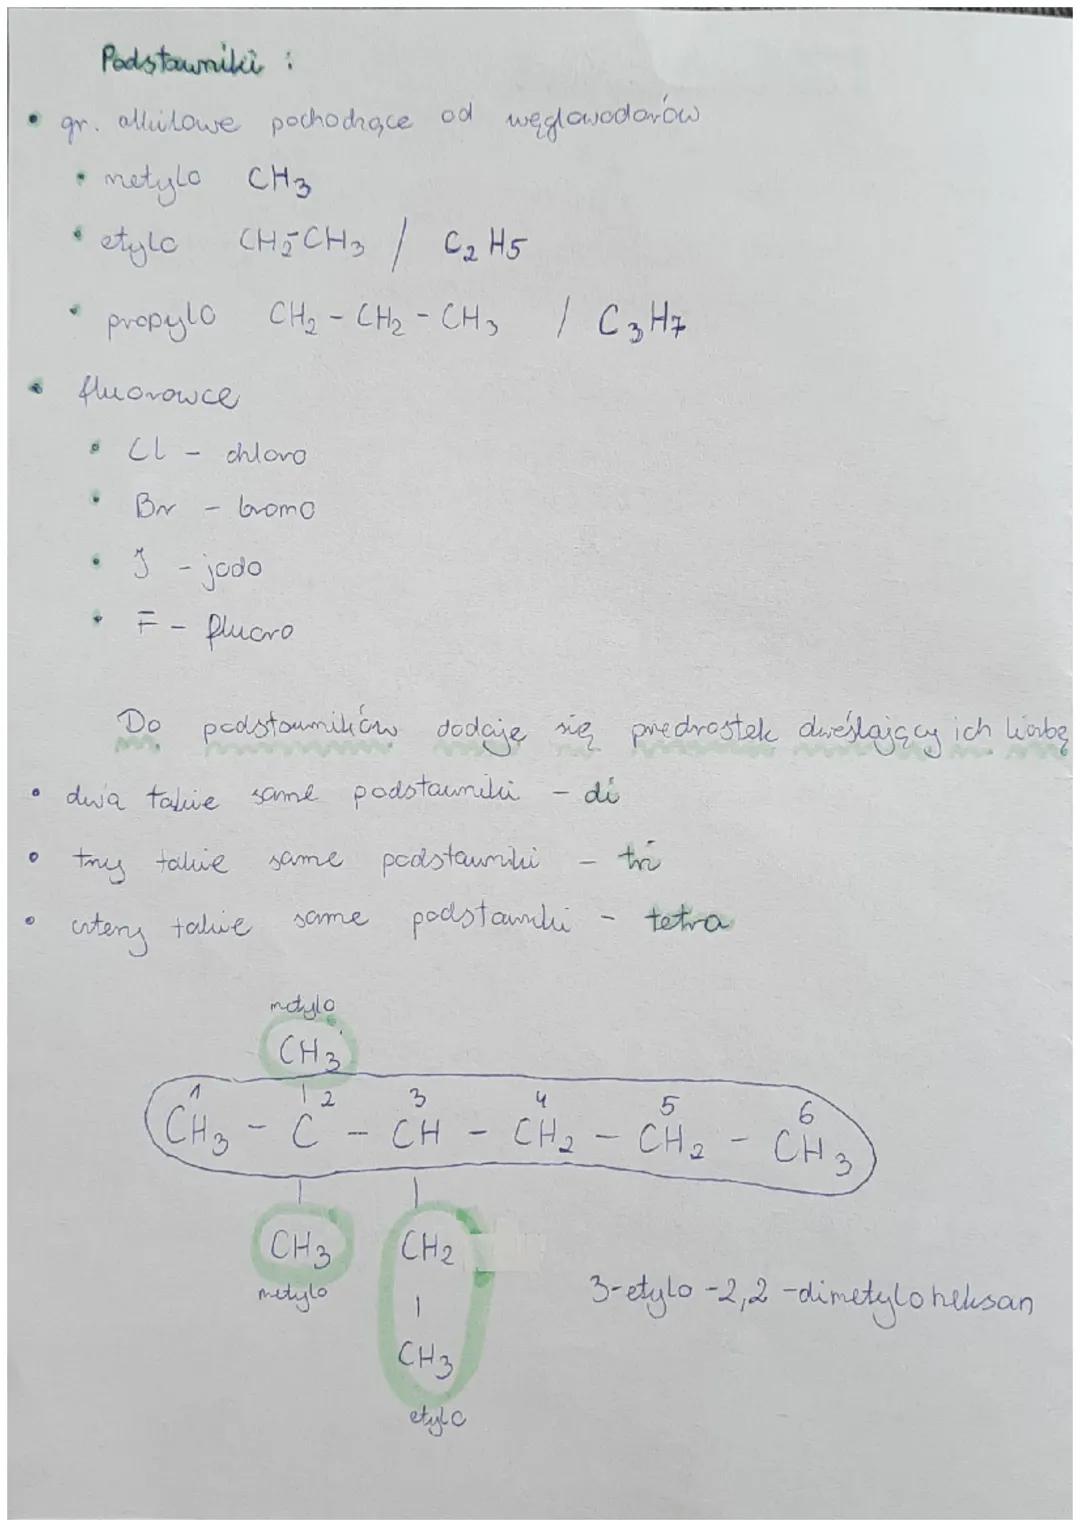 Podstawniki :
• gr. alkilowe pochodzące od węglowodorów
• metylo CH3
• etylo CH2-CH3 / C2H5
• propylo CH2 - CH2 - CH3 / C3H7
• fluorowce
• Cl - chloro
• Br - bromo
• J - jodo
• F - fluoro
Do podstawników dodaje się przedrostek określający ich liczbę
• dwa takie same podstawniki - di
• trzy takie same podstawniki - tri
• cztery takie same podstawniki - tetra
metylo
CH3
1 2 3 4 5 6
CH3 - C - CH - CH2 - CH2 - CH3
CH3 CH2
metylo
3-etylo-2,2-dimetyloheksan
CH3
etylo